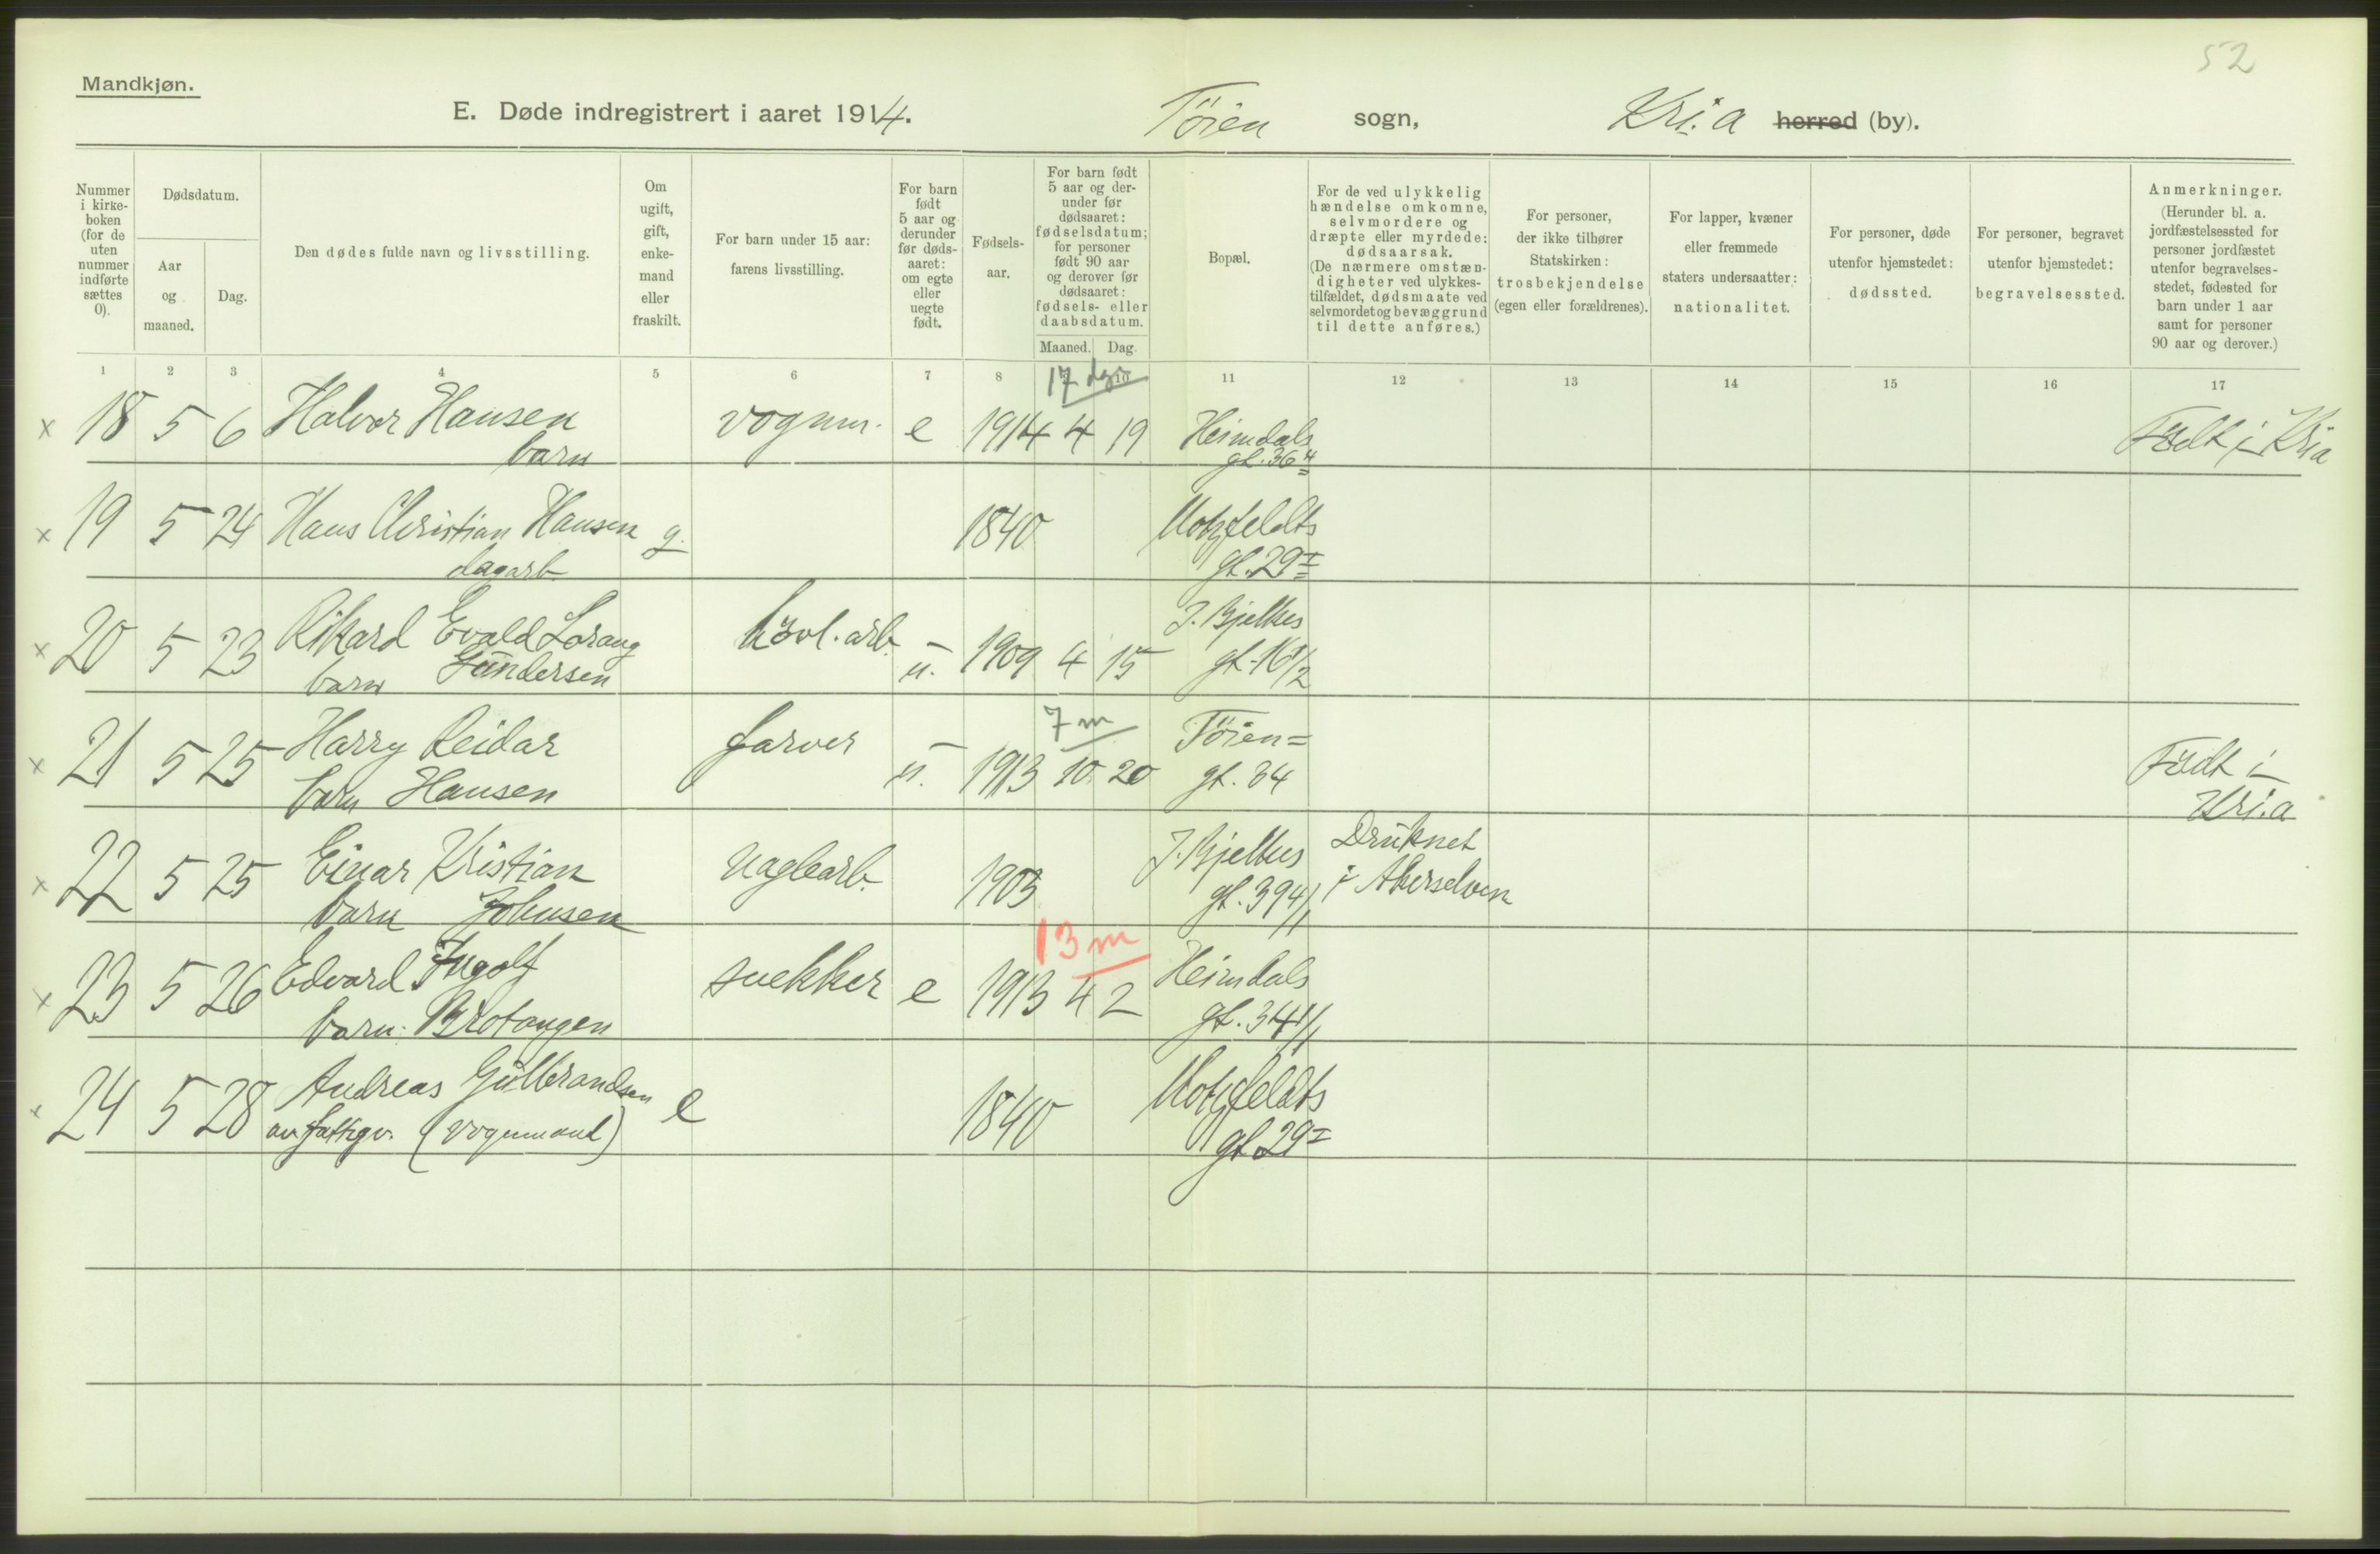 52
Mandkjøn.
E. Døde indregistrert i aaret 1914. Töien sogn, Kri.a herred (by).
Nummer i kirke-boken (for de uten nummer indførte sættes 0).
Dødsdatum.
Aar og maaned.
Dag.
Den dødes fulde navn og livsstilling.
Om ugift, gift, enke-mand eller fraskilt.
For barn under 15 aar: farens livsstilling.
For barn født 5 aar og derunder før døds-aaret: om egte eller uegte født.
Fødsels-aar.
For barn født 5 aar og der-under før dødsaaret: fødselsdatum; for personer født 90 aar og derover før dødsaaret: fødsels- eller daabsdatum.
Maaned. Dag.
Bopæl.
For de ved ulykkelig hændelse omkomne, selvmordere og dræpte eller myrdede: dødsaarsak. (De nærmere omstæn-digheter ved ulykkes-tilfældet, dødsmaate ved selvmordet og bevæggrund til dette anføres.)
For personer, der ikke tilhører Statskirken: trosbekjendelse (egen eller forældrenes).
For lapper, kvæner eller fremmede staters undersaatter: nationalitet.
For personer, døde utenfor hjemstedet: dødssted.
For personer, begravet utenfor hjemstedet: begravelsessted.
Anmerkninger. (Herunder bl. a. jordfæstelsessted for personer jordfæstet utenfor begravelses-stedet, fødested for barn under 1 aar samt for personer 90 aar og derover.)
1 2 3 4 5 6 7 8 10 11 12 13 14 15 16 17
17 dgr
x 18 5 6 Halvor Hansen vognm. e 1914 4 19 Heimdals Födt i Kria
barn gt. 36 4
x 19 5 24 Hans Christian Hansen g. 1840 Motzfeldts
dagarb gt. 29 I
x 20 5 23 Rikard Evald Lorang hövl.arb. u. 1909 4 15 J. Bjelkes
barn Gundersen gt. 16 1/2
7 m
x 21 5 25 Harry Reidar farver u. 1913 10. 20 Töien= Födt i
barn Hansen gt. 34 Kri.a
x 22 5 25 Einar Kristian naglearb. 1903 J. Bjelkes Druknet
barn Johnsen gt. 39 4/1 i Akerselven
13 m
x 23 5 26 Edvard Ingolf snekker e 1913 4 2 Heimdals
barn. Brotangen gt. 34 1/1
x 24 5 28 Andreas Gulbrandsen e 1840 Motzfeldts
av fattigv. (vognmand) gt 29 I